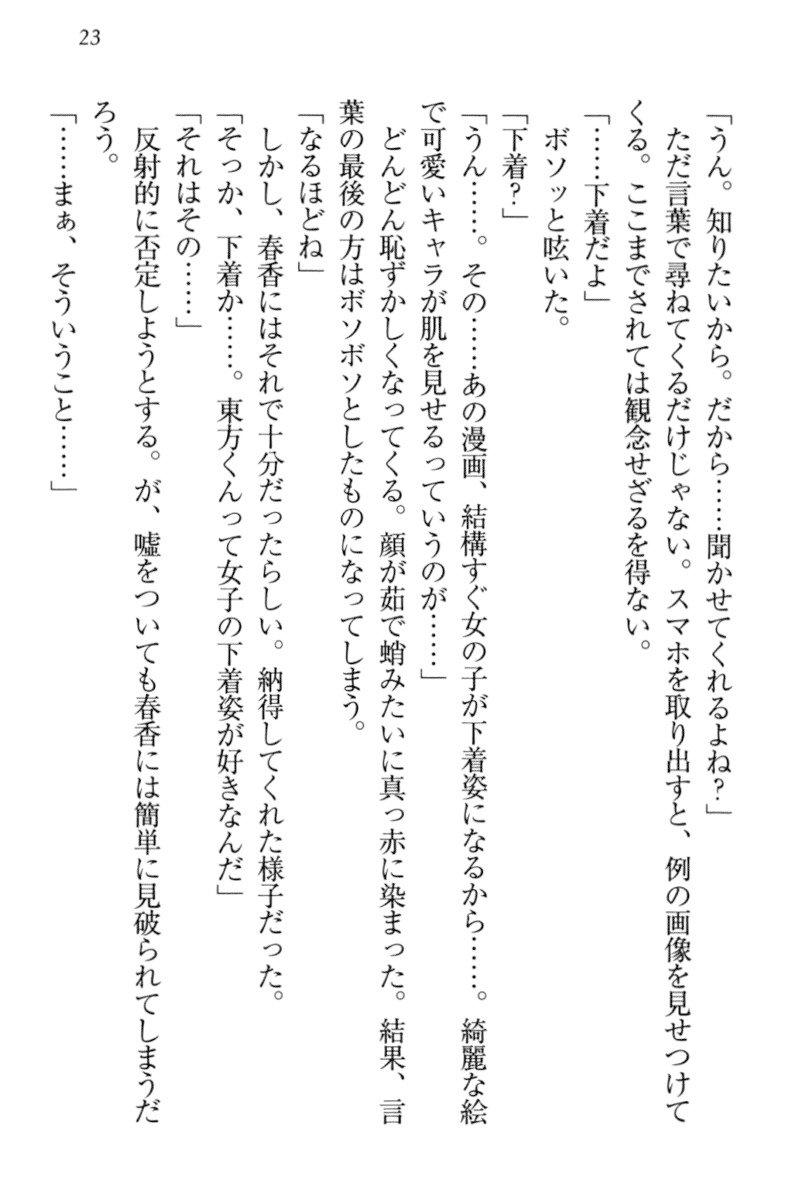 23
「うん。知りたいから。だから……聞かせてくれるよね?」
ただ言葉で尋ねてくるだけじゃない。スマホを取り出すと、例の画像を見せつけて
くる。ここまでされては観念せざるを得ない。
「……下着だよ」
ボソッと呟いた。
「下着?」
「うん……。その……あの漫画、結構すぐ女の子が下着姿になるから……。綺麗な絵
で可愛いキャラが肌を見せるっていうのが……」
どんどん恥ずかしくなってくる。顔が茹で蛸みたいに真っ赤に染まった。結果、言
葉の最後の方はボソボソとしたものになってしまう。
「なるほどね」
しかし、春香にはそれで十分だったらしい。納得してくれた様子だった。
「そっか、下着か……。東方くんって女子の下着姿が好きなんだ」
「それはその……」
反射的に否定しようとする。が、嘘をついても春香には簡単に見破られてしまうだ
ろう。
「……まぁ、そういうこと……」